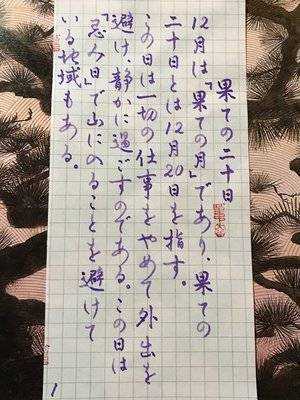 果ての二十日
12月は「果ての月」であり、果ての
二十日とは12月20日を指す。
この日は一切の仕事をやめて外出を
避け、静かに過ごすのである。この日は
「忌み日」で山に入ることを避けて
いる地域もある。
1